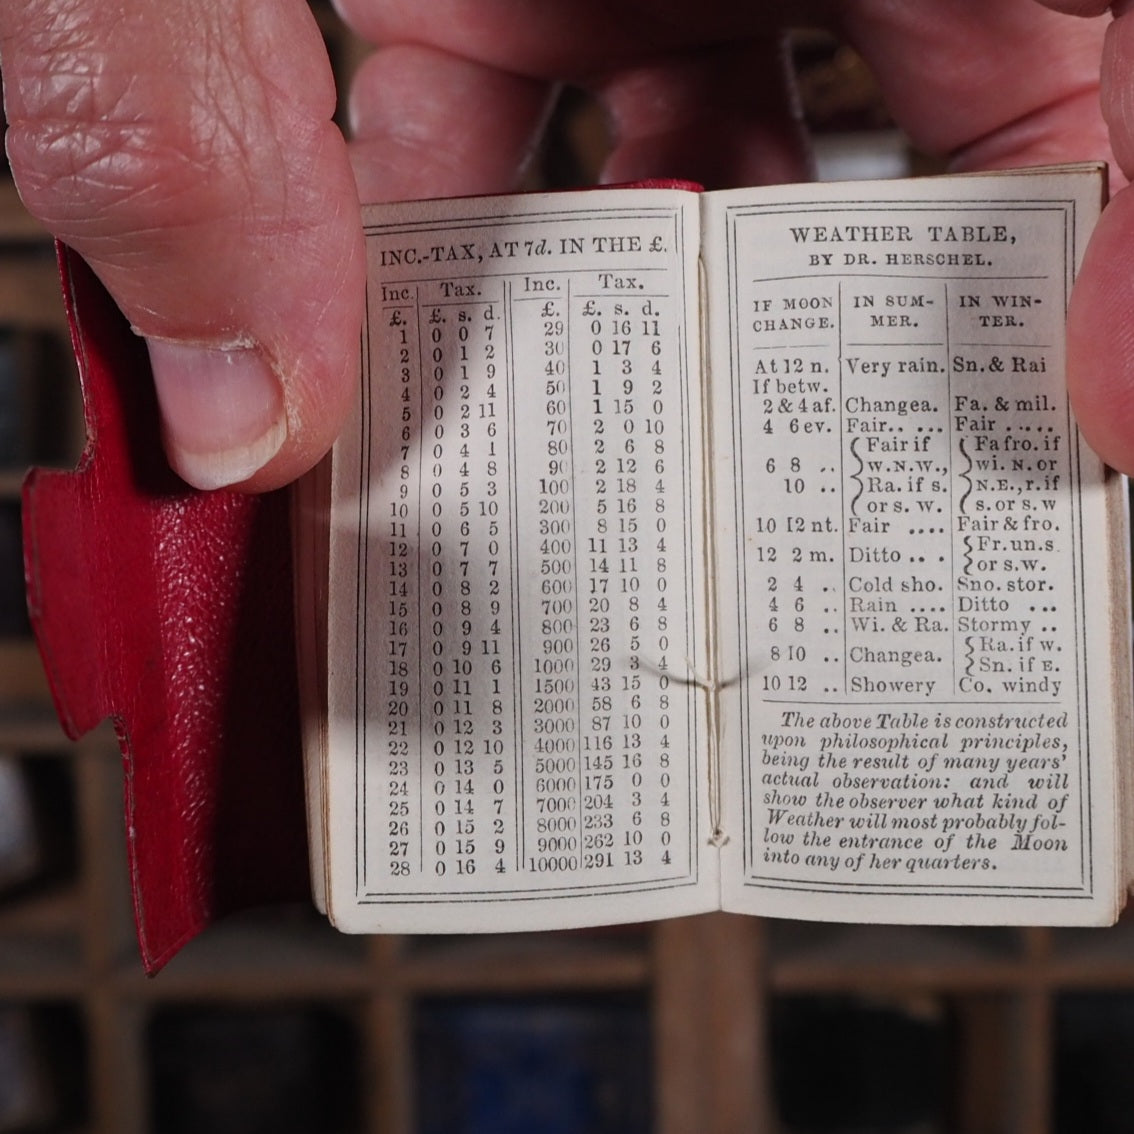 INC.-TAX, AT 7d. IN THE £.
Inc. | Tax. | Inc. | Tax.
£. | £. s. d. | £. | £. s. d.
1 | 0 0 7 | 29 | 0 16 11
2 | 0 1 2 | 30 | 0 17 6
3 | 0 1 9 | 40 | 1 3 4
4 | 0 2 4 | 50 | 1 9 2
5 | 0 2 11 | 60 | 1 15 0
6 | 0 3 6 | 70 | 2 0 10
7 | 0 4 1 | 80 | 2 6 8
8 | 0 4 8 | 90 | 2 12 6
9 | 0 5 3 | 100 | 2 18 4
10 | 0 5 10 | 200 | 5 16 8
11 | 0 6 5 | 300 | 8 15 0
12 | 0 7 0 | 400 | 11 13 4
13 | 0 7 7 | 500 | 14 11 8
14 | 0 8 2 | 600 | 17 10 0
15 | 0 8 9 | 700 | 20 8 4
16 | 0 9 4 | 800 | 23 6 8
17 | 0 9 11 | 900 | 26 5 0
18 | 0 10 6 | 1000 | 29 3 4
19 | 0 11 1 | 1500 | 43 15 0
20 | 0 11 8 | 2000 | 58 6 8
21 | 0 12 3 | 3000 | 87 10 0
22 | 0 12 10 | 4000 | 116 13 4
23 | 0 13 5 | 5000 | 145 16 8
24 | 0 14 0 | 6000 | 175 0 0
25 | 0 14 7 | 7000 | 204 3 4
26 | 0 15 2 | 8000 | 233 6 8
27 | 0 15 9 | 9000 | 262 10 0
28 | 0 16 4 | 10000 | 291 13 4
WEATHER TABLE,
BY DR. HERSCHEL.
IF MOON | IN SUM- | IN WIN-
CHANGE. | MER. | TER.
At 12 n. | Very rain. | Sn. & Rai
If betw.
2 & 4 af. | Changea. | Fa. & mil.
4 6 ev. | Fair.. ... | Fair .....
{ Fair if | { Fa fro. if
6 8 .. | w. N. W., | wi. N. or
10 .. | Ra. if s. | N.E., r. if
or s. w. | s. or s. w
10 12 nt. | Fair .... | Fair & fro.
12 2 m. | Ditto .. . | { Fr. un. s.
or s.w.
2 4 .. | Cold sho. | Sno. stor.
4 6 .. | Rain .... | Ditto ...
6 8 .. | Wi. & Ra. | Stormy ..
8 10 .. | Changea. | { Ra. if w.
Sn. if E.
10 12 .. | Showery | Co. windy
The above Table is constructed
upon philosophical principles,
being the result of many years'
actual observation: and will
show the observer what kind of
Weather will most probably fol-
low the entrance of the Moon
into any of her quarters.